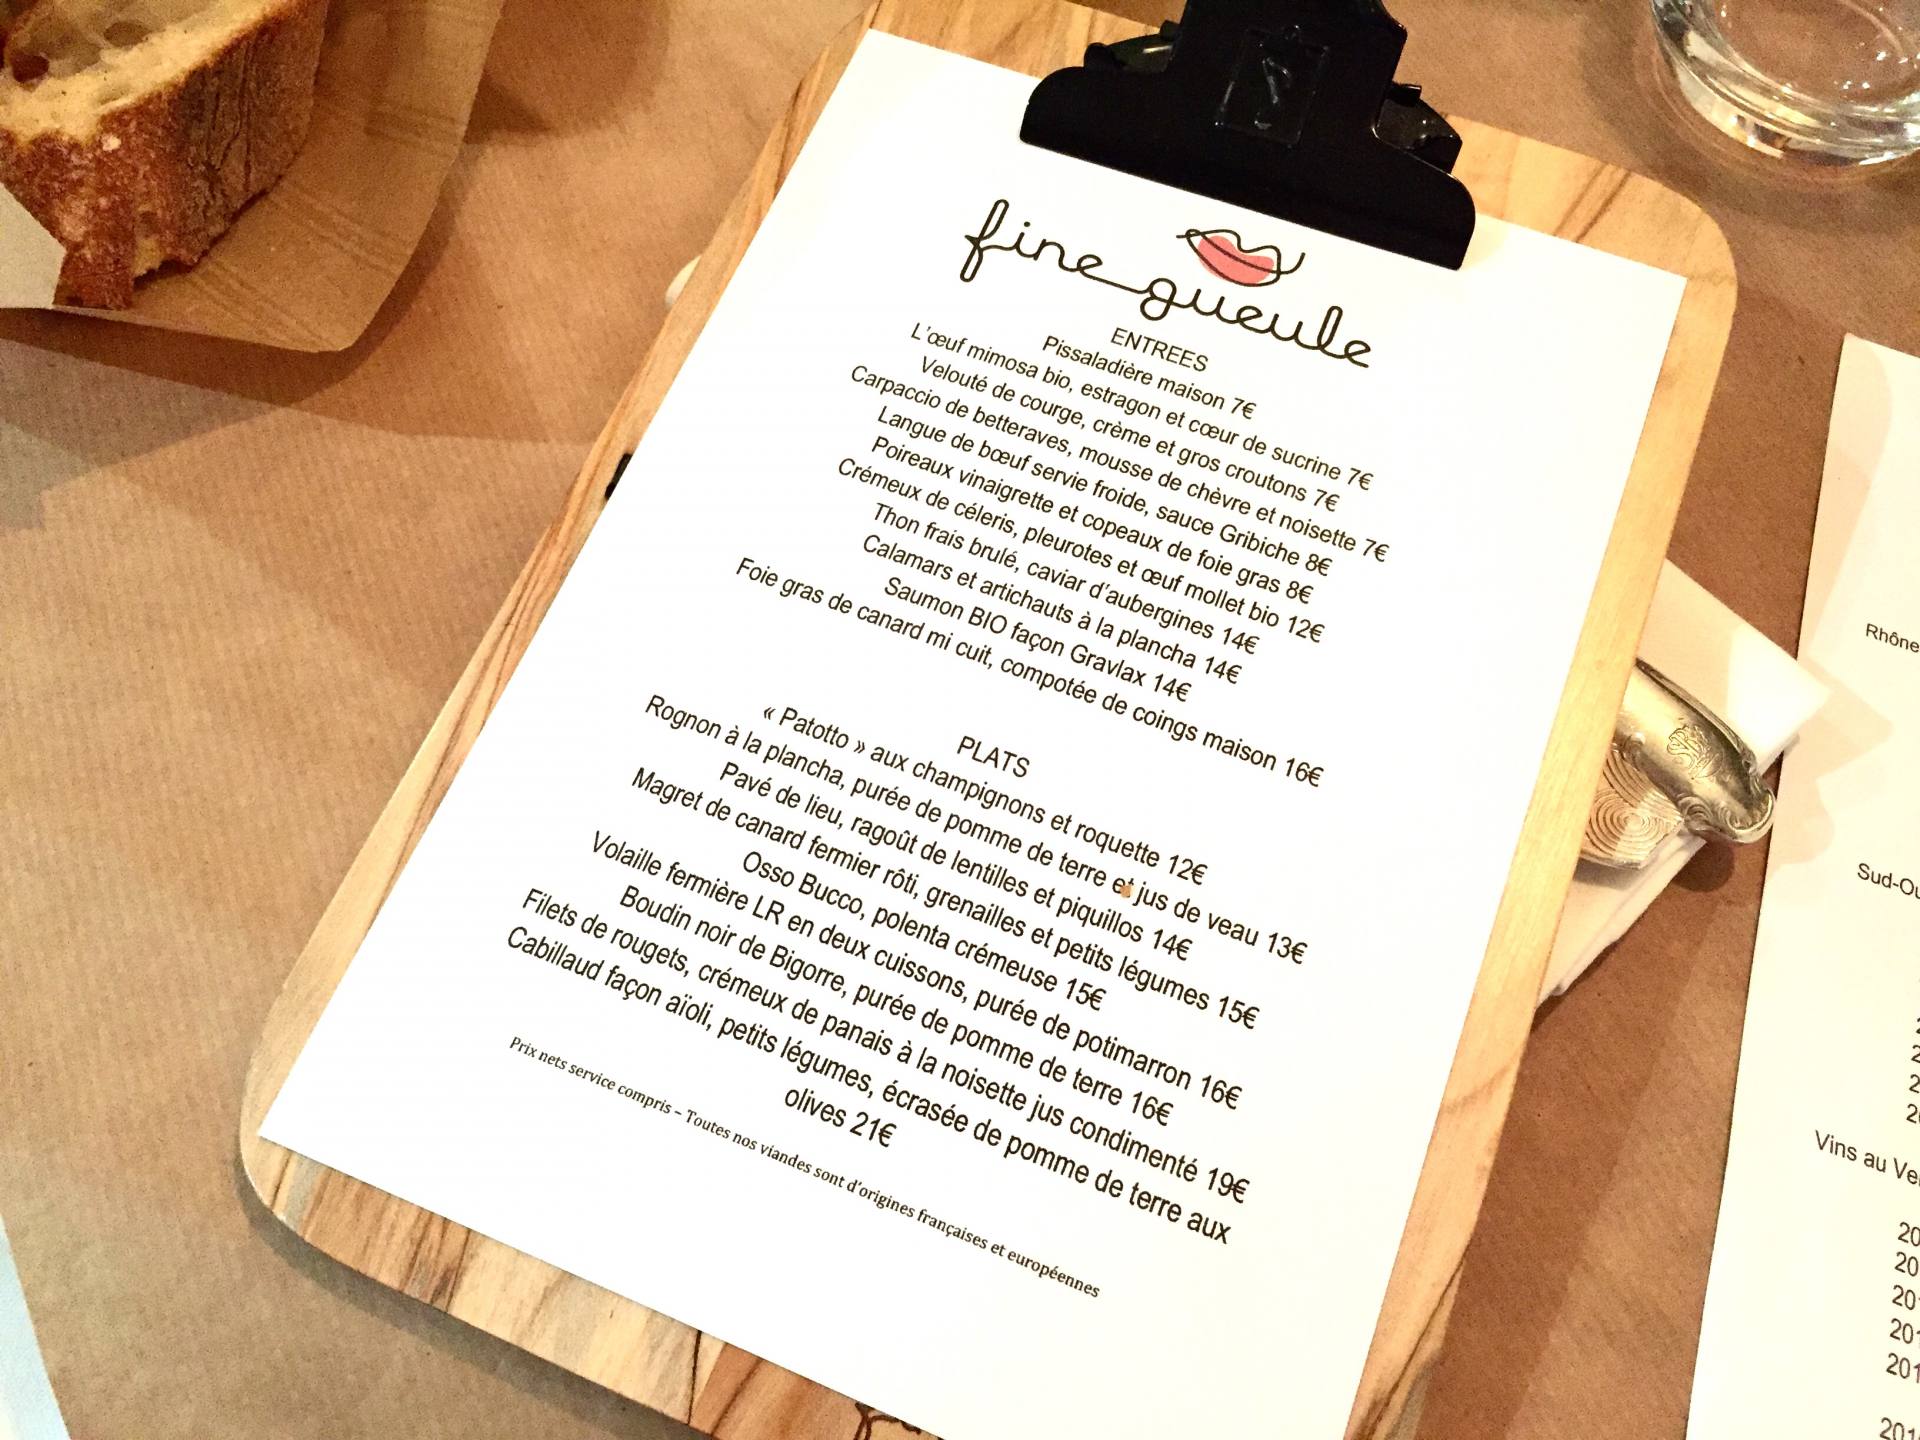 fine gueule
ENTREES
Pissaladière maison 7€
L'œuf mimosa bio, estragon et cœur de sucrine 7€
Velouté de courge, crème et gros croutons 7€
Carpaccio de betteraves, mousse de chèvre et noisette 7€
Langue de bœuf servie froide, sauce Gribiche 8€
Poireaux vinaigrette et copeaux de foie gras 8€
Crémeux de céleris, pleurotes et œuf mollet bio 12€
Thon frais brulé, caviar d'aubergines 14€
Calamars et artichauts à la plancha 14€
Saumon BIO façon Gravlax 14€
Foie gras de canard mi cuit, compotée de coings maison 16€
PLATS
« Patotto » aux champignons et roquette 12€
Rognon à la plancha, purée de pomme de terre et jus de veau 13€
Pavé de lieu, ragoût de lentilles et piquillos 14€
Magret de canard fermier rôti, grenailles et petits légumes 15€
Osso Bucco, polenta crémeuse 15€
Volaille fermière LR en deux cuissons, purée de potimarron 16€
Boudin noir de Bigorre, purée de pomme de terre 16€
Filets de rougets, crémeux de panais à la noisette jus condimenté 19€
Cabillaud façon aïoli, petits légumes, écrasée de pomme de terre aux
olives 21€
Prix nets service compris – Toutes nos viandes sont d'origines françaises et européennes
Rhône
Sud-Ou
Vins au Ve